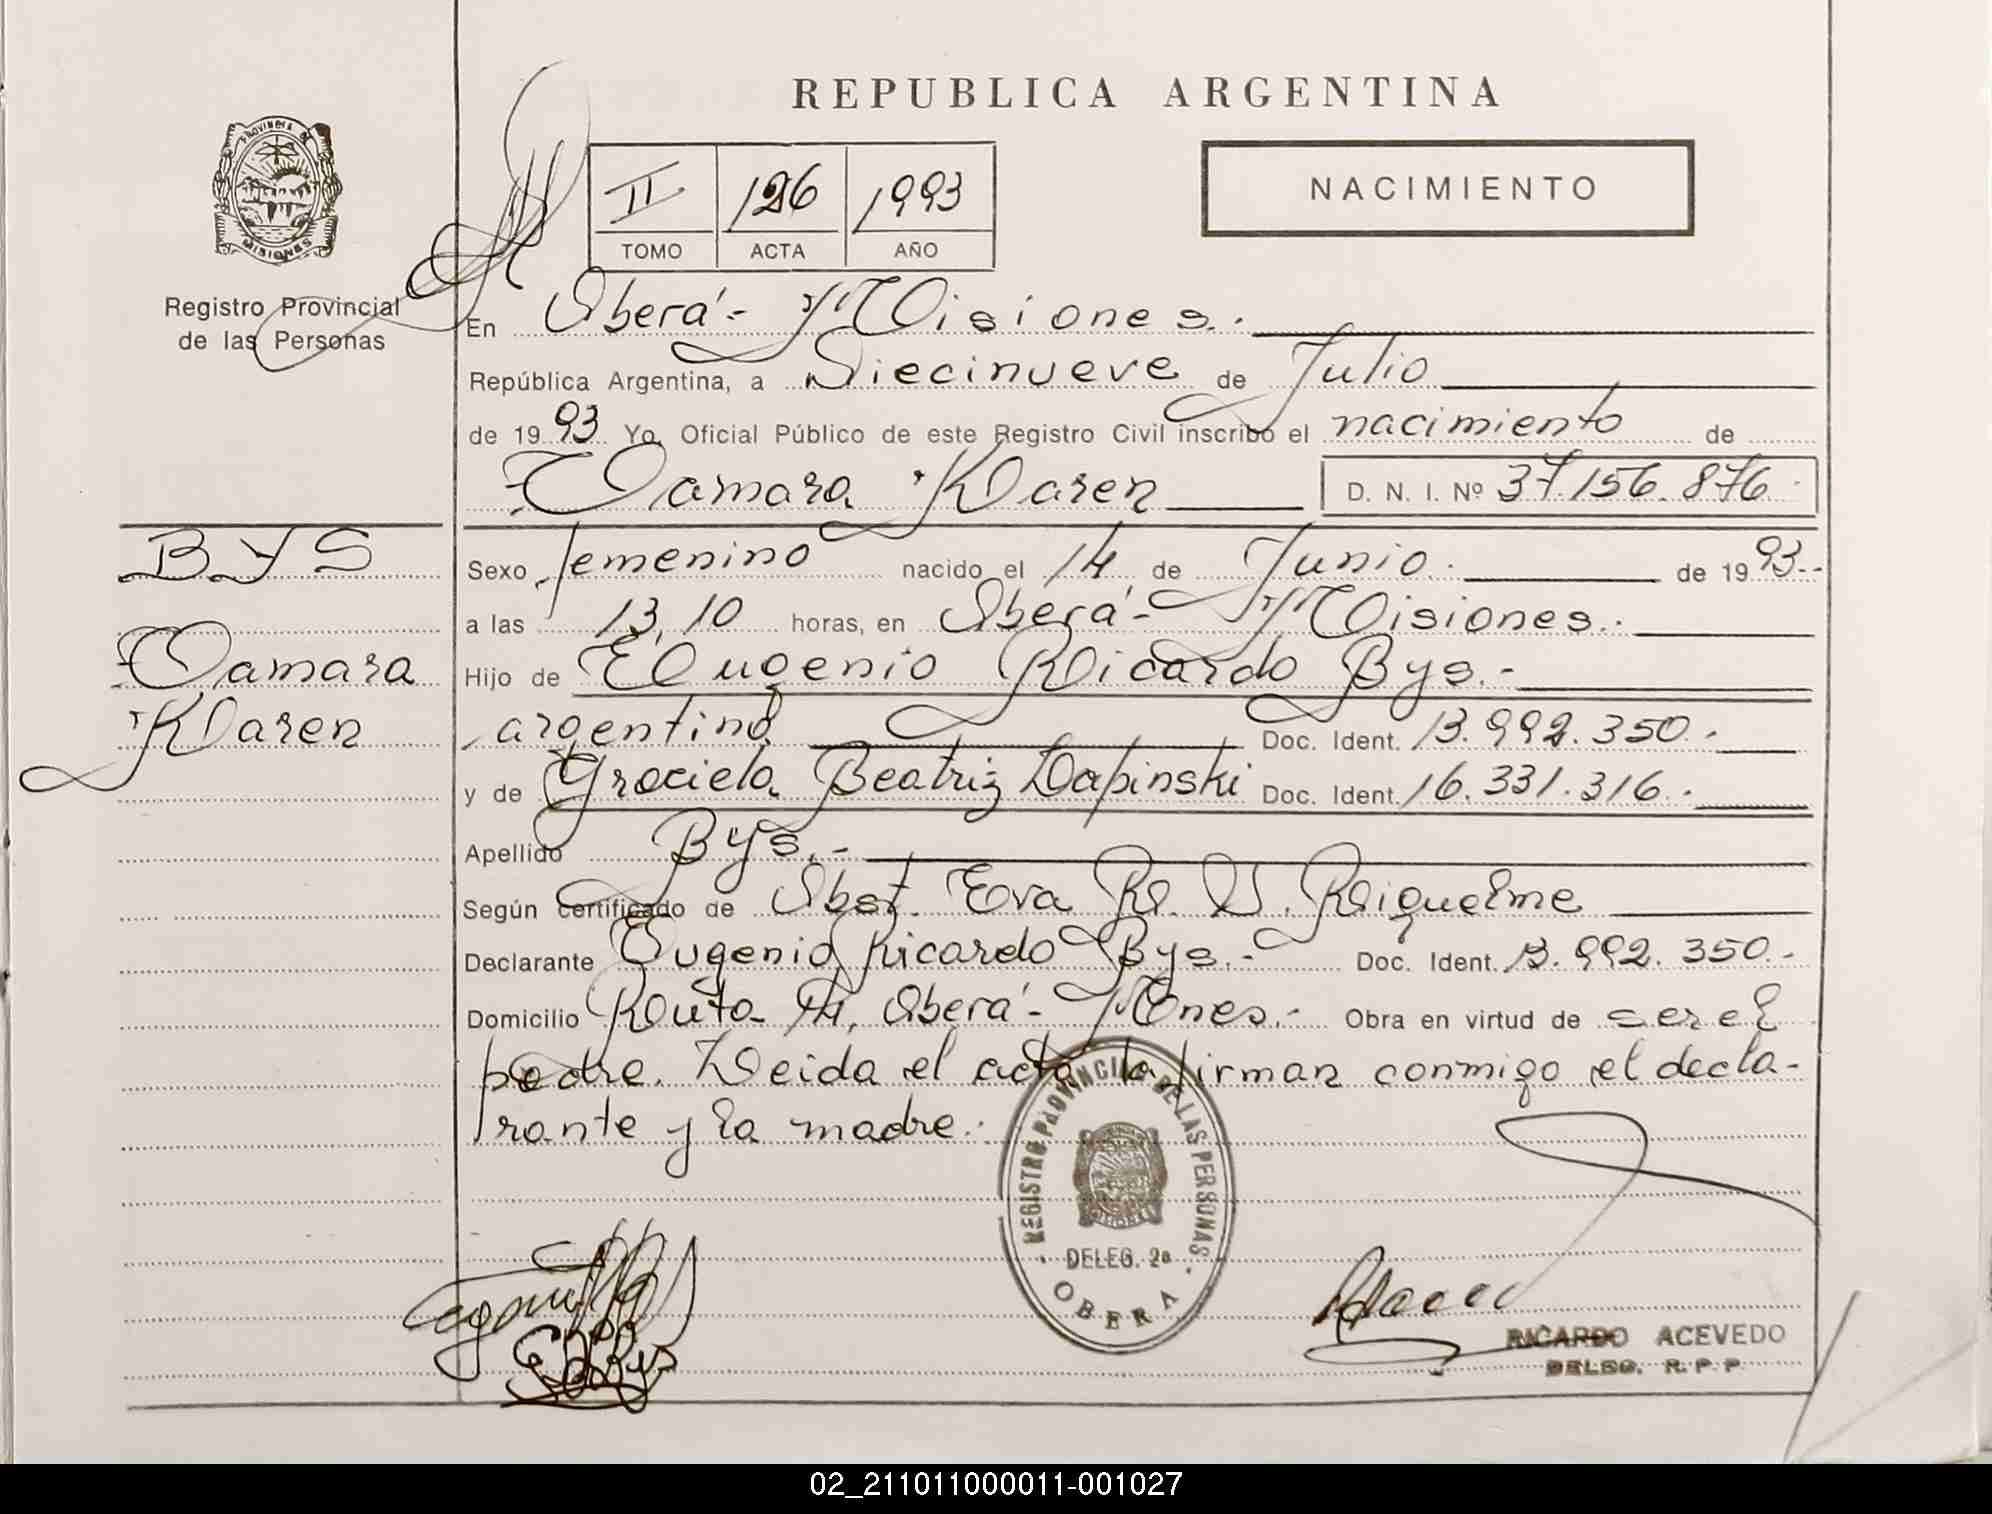 REPUBLICA ARGENTINA
PROVINCIA DE
MISIONES
Registro Provincial
de las Personas
II 126 1993
TOMO ACTA AÑO
NACIMIENTO
En Oberá - Misiones.
República Argentina, a Diecinueve de Julio
de 1993 Yo, Oficial Público de este Registro Civil inscribo el nacimiento de
Tamara Karen D. N. I. Nº 37.156.876
BYS
Tamara
Karen
Sexo femenino nacido el 14 de Junio. de 1993.-
a las 13,10 horas, en Oberá - Misiones.
Hijo de Eugenio Ricardo Bys.-
argentino Doc. Ident. 13.992.350.-
y de Graciela Beatriz Lapinski Doc. Ident. 16.331.316.-
Apellido Bys.-
Según certificado de Obst. Eva R. Riquelme
Declarante Eugenio Ricardo Bys.- Doc. Ident. 13.992.350.-
Domicilio Ruta 14, Oberá - Mnes.- Obra en virtud de ser el
padre. Leida el acta, la firman conmigo el decla-
rante y la madre.-
REGISTRO PROVINCIAL DE LAS PERSONAS
DELEG. 2a
OBERA
RICARDO ACEVEDO
DELEG. R. P. P.
02_211011000011-001027